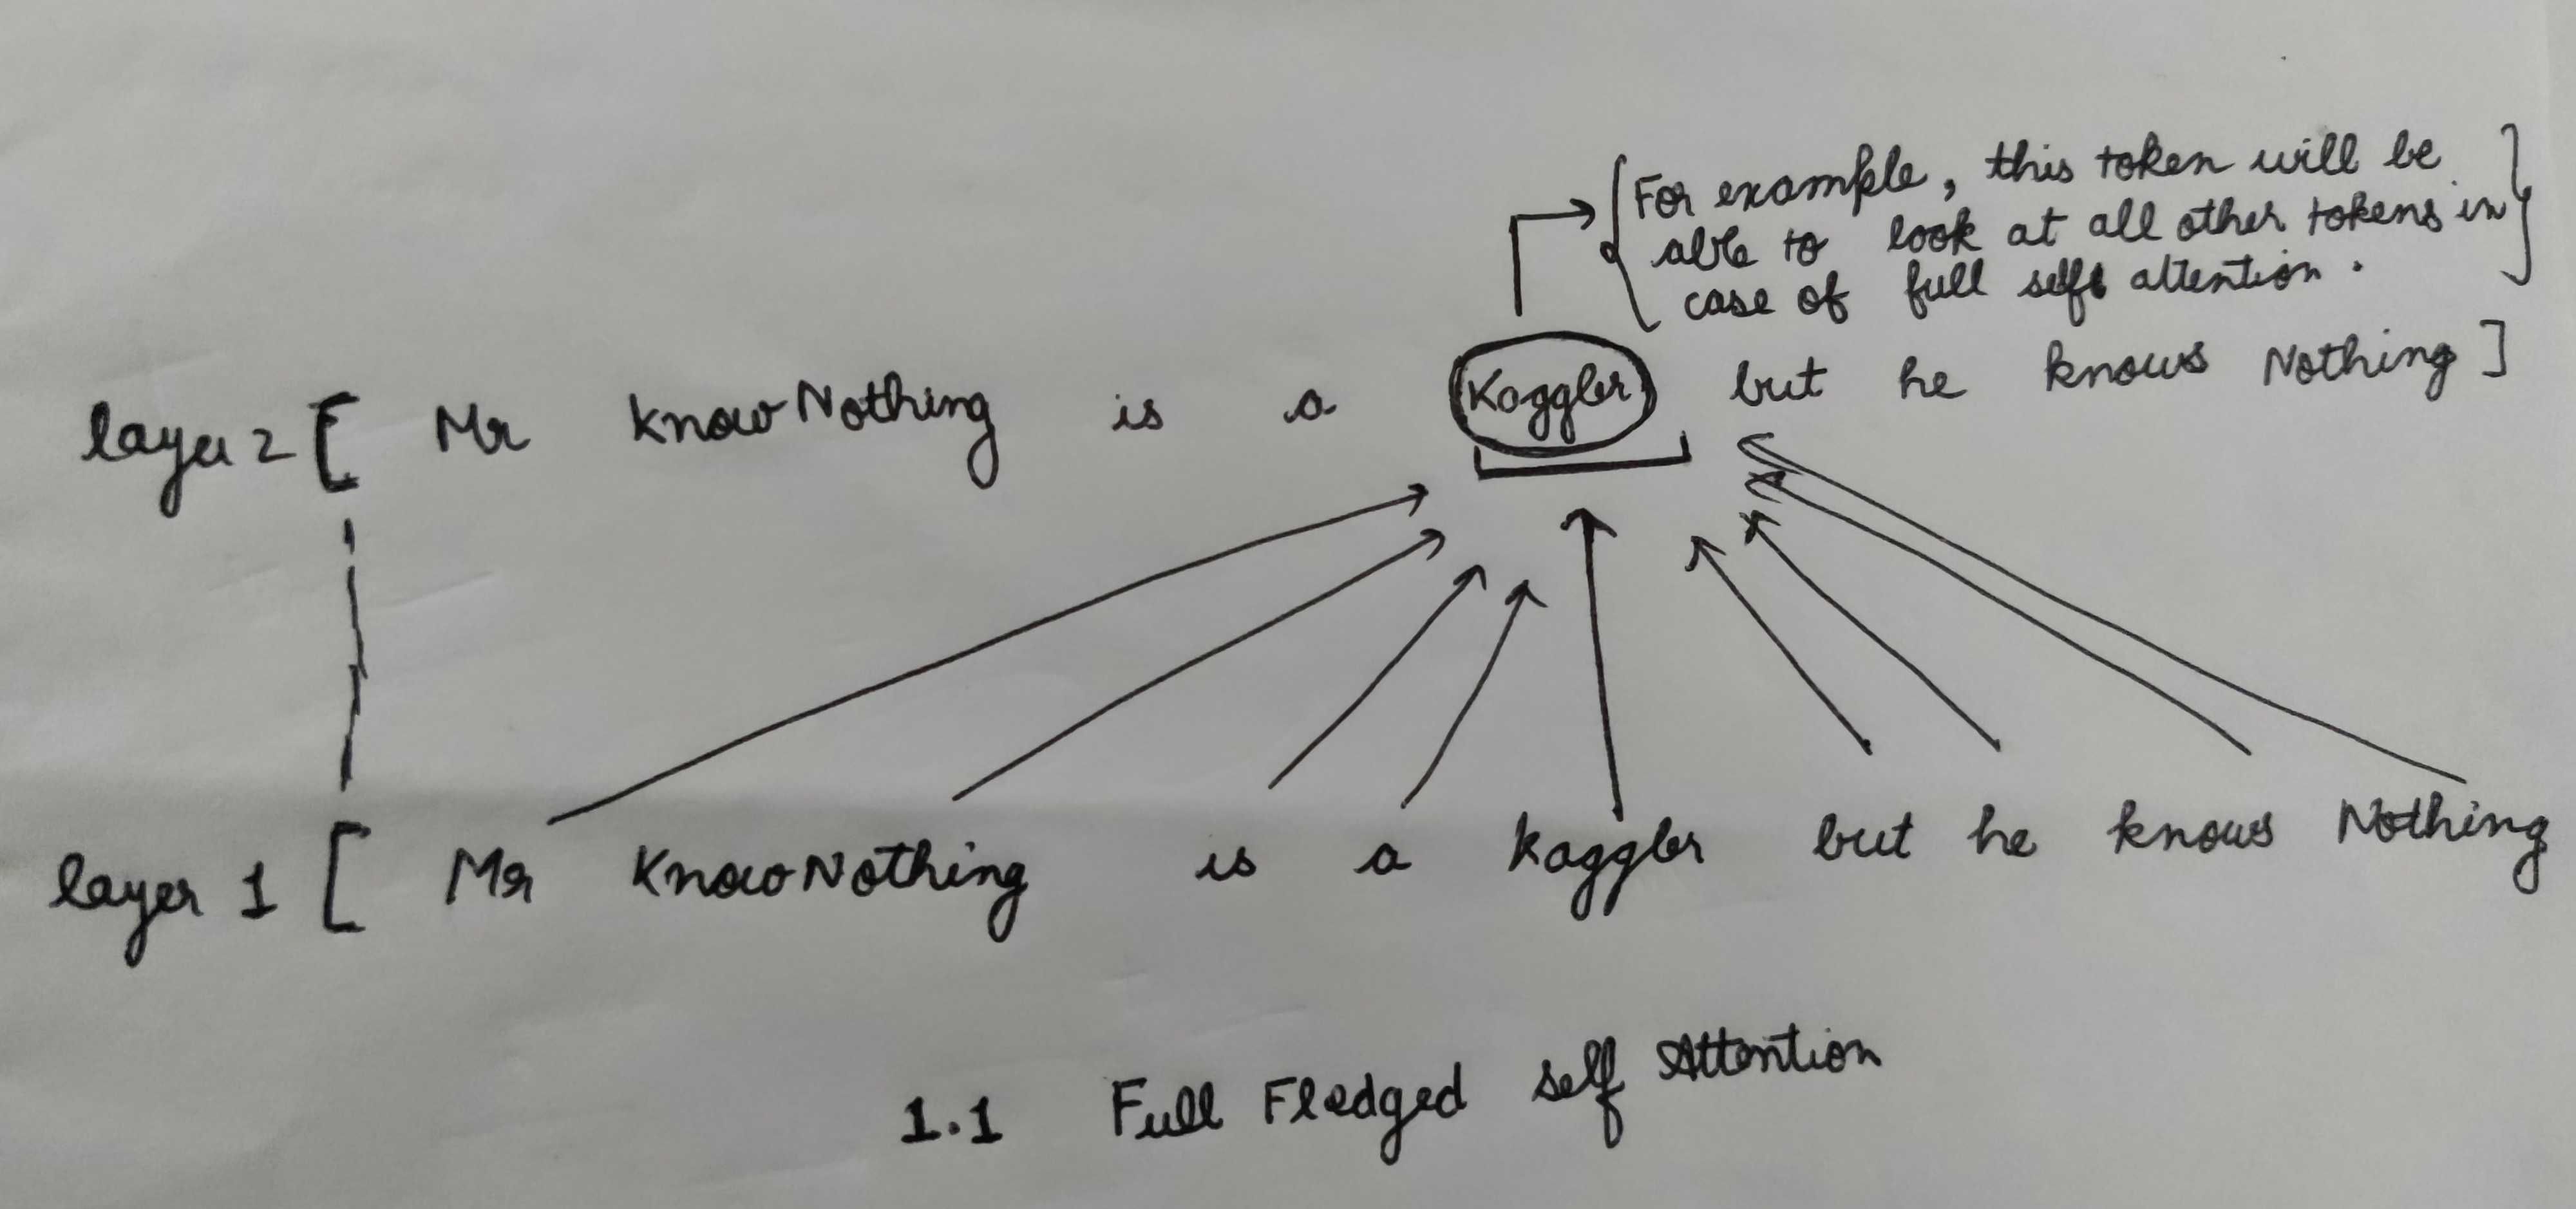 {For example, this token will be
able to look at all other tokens in
case of full self attention.}
layer 2 [ Mr KnowNothing is a Kaggler but he knows Nothing ]
layer 1 [ Mr KnowNothing is a Kaggler but he knows Nothing
1.1 Full Fledged self Attention